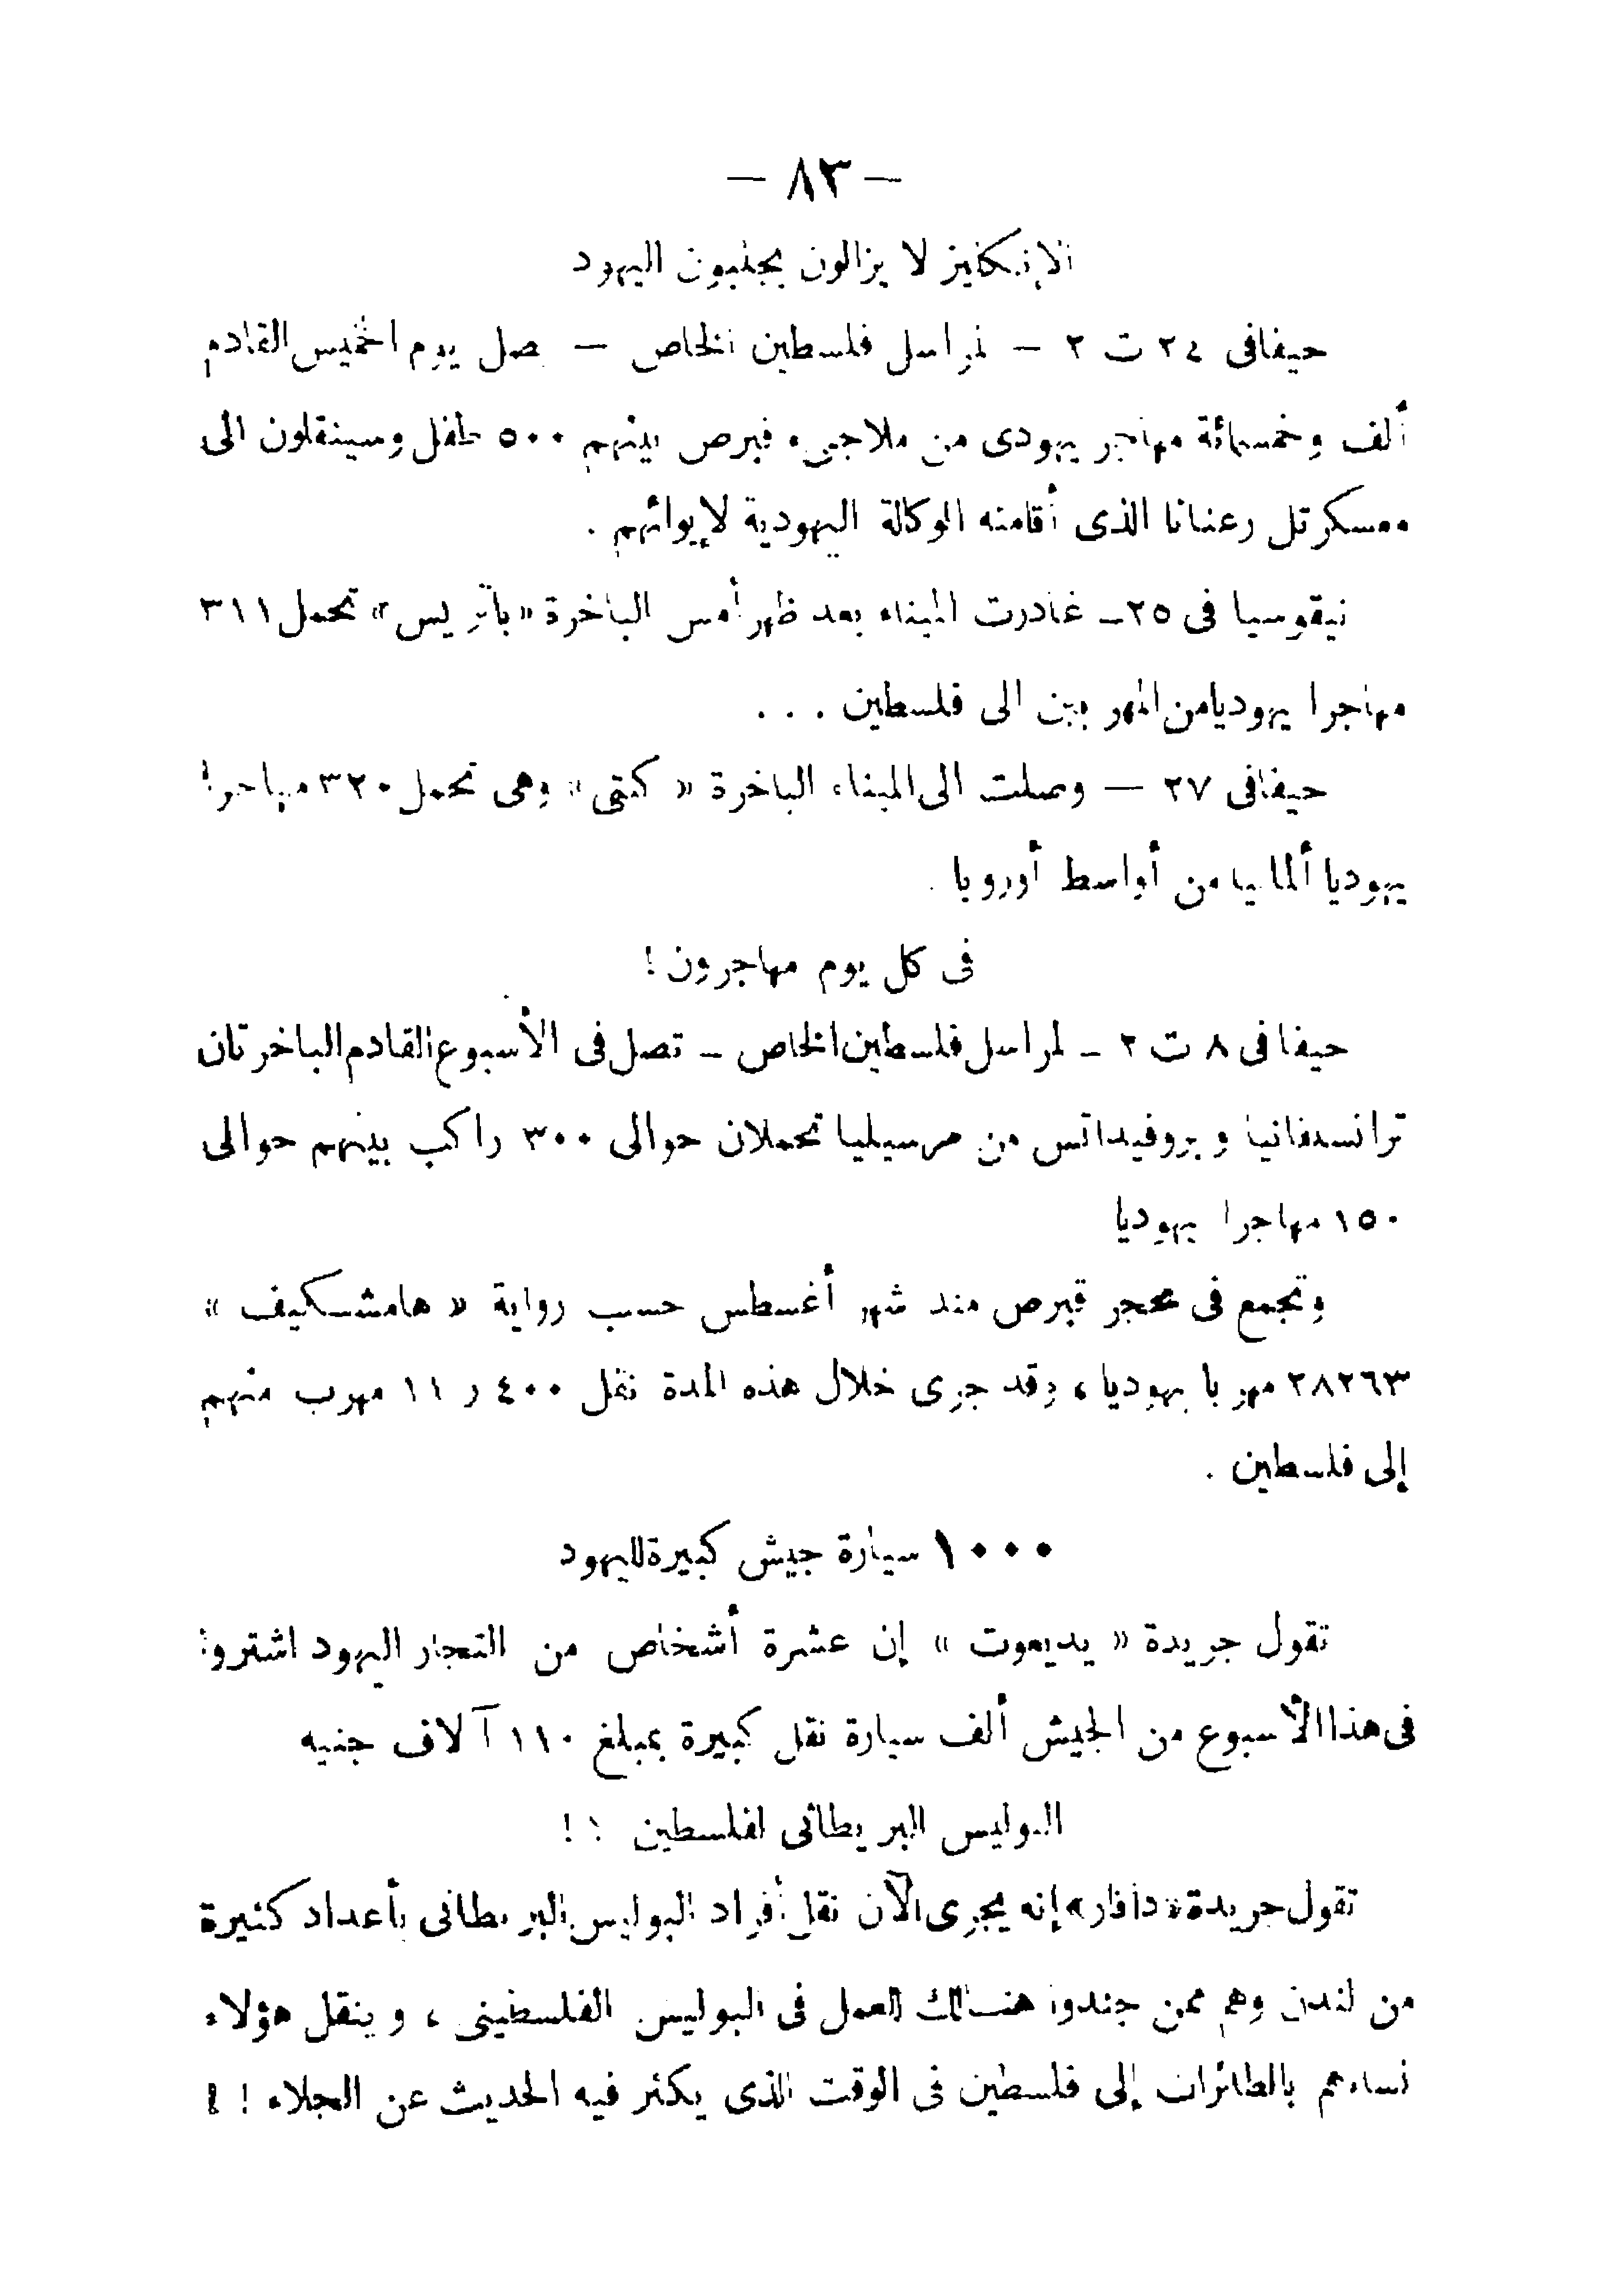 — ٨٣ —
الإنكليز لا يزالون يجلبون اليهود
حيفا فى ٢٤ ت ٢ — لمراسل فلسطين الخاص — يصل يوم الخميس القادم
ألف وخمسمائة مهاجر يهودى من ملاجىء قبرص بينهم ٥٠٠ طفل وسينقلون الى
معسكر تل رعنانا الذى أقامته الوكالة اليهودية لإيوائهم .
نيقوسيا فى ٢٥ — غادرت الميناء بعد ظهر أمس الباخرة « باتريس » تحمل ٣١١
مهاجرا يهوديا من المهربين الى فلسطين . . .
حيفا فى ٢٧ — وصلت الى الميناء الباخرة « كتى » وهى تحمل ٣٢٠ مهاجرا
يهوديا ألمانيا من أواسط أوروبا .
فى كل يوم مهاجرون !
حيفا فى ٨ ت ٢ — لمراسل فلسطين الخاص — تصل فى الأسبوع القادم الباخرتان
ترانسلفانيا و بروفيدانس من مرسيليا تحملان حوالى ٣٠٠ راكب بينهم حوالى
١٥٠ مهاجرا يهوديا
وتجمع فى محجر قبرص منذ شهر أغسطس حسب رواية « هامشكيف »
٢٨٢٦٣ مهربا يهوديا ، وقد جرى خلال هذه المدة نقل ٤٠٠ ر ١١ مهرب منهم
إلى فلسطين .
١٠٠٠ سيارة جيش كبيرة لليهود
تقول جريدة « يديعوت » إن عشرة أشخاص من التجار اليهود اشتروا
فى هذا الأسبوع من الجيش ألف سيارة نقل كبيرة بمبلغ ١١٠ آلاف جنيه
البوليس البريطانى لفلسطين ! !
تقول جريدة « دافار » إنه يجرى الآن نقل أفراد البوليس البريطانى بأعداد كثيرة
من لندن وهم ممن جندوا هنالك للعمل فى البوليس الفلسطينى ، وينقل هؤلاء
نساءهم بالطائرات إلى فلسطين فى الوقت الذى يكثر فيه الحديث عن الجلاء ! !